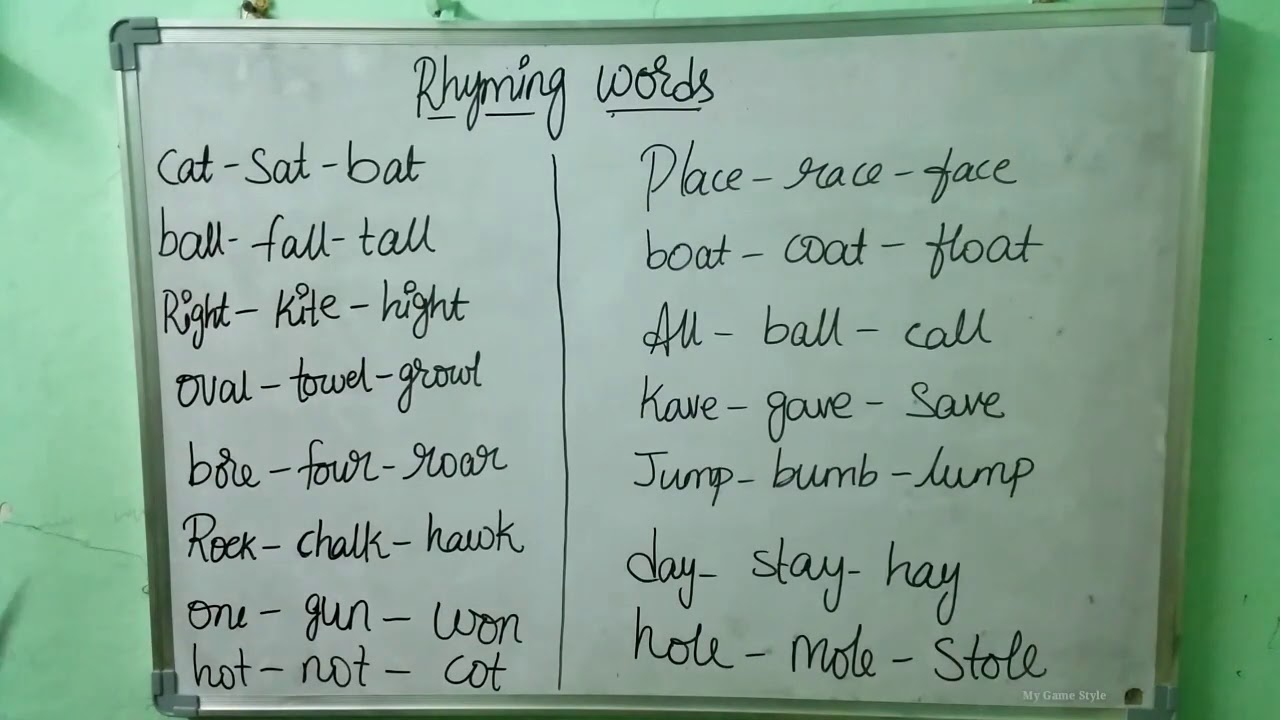 Rhyming words
Cat - Sat - bat
ball - fall - tall
Right - Kite - hight
oval - towel - growl
bore - four - roar
Rock - chalk - hawk
one - gun - won
hot - not - cot
Place - race - face
boat - coat - float
All - ball - call
Kave - gave - Save
Jump - bumb - lump
day - stay - hay
hole - mole - Stole
My Game Style